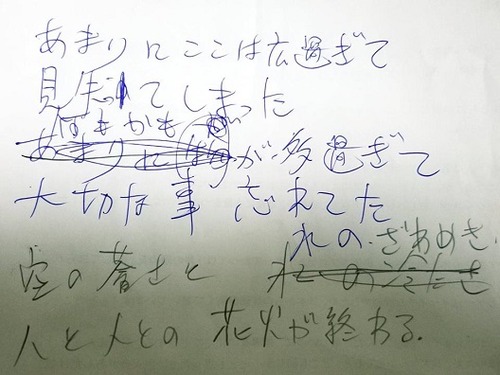 あまりにここは広過ぎて
見失ってしまった
何もかも
が多過ぎて
大切な事 忘れてた
の.ざわめき.
空の蒼さと
人と人との 花火が終わる.